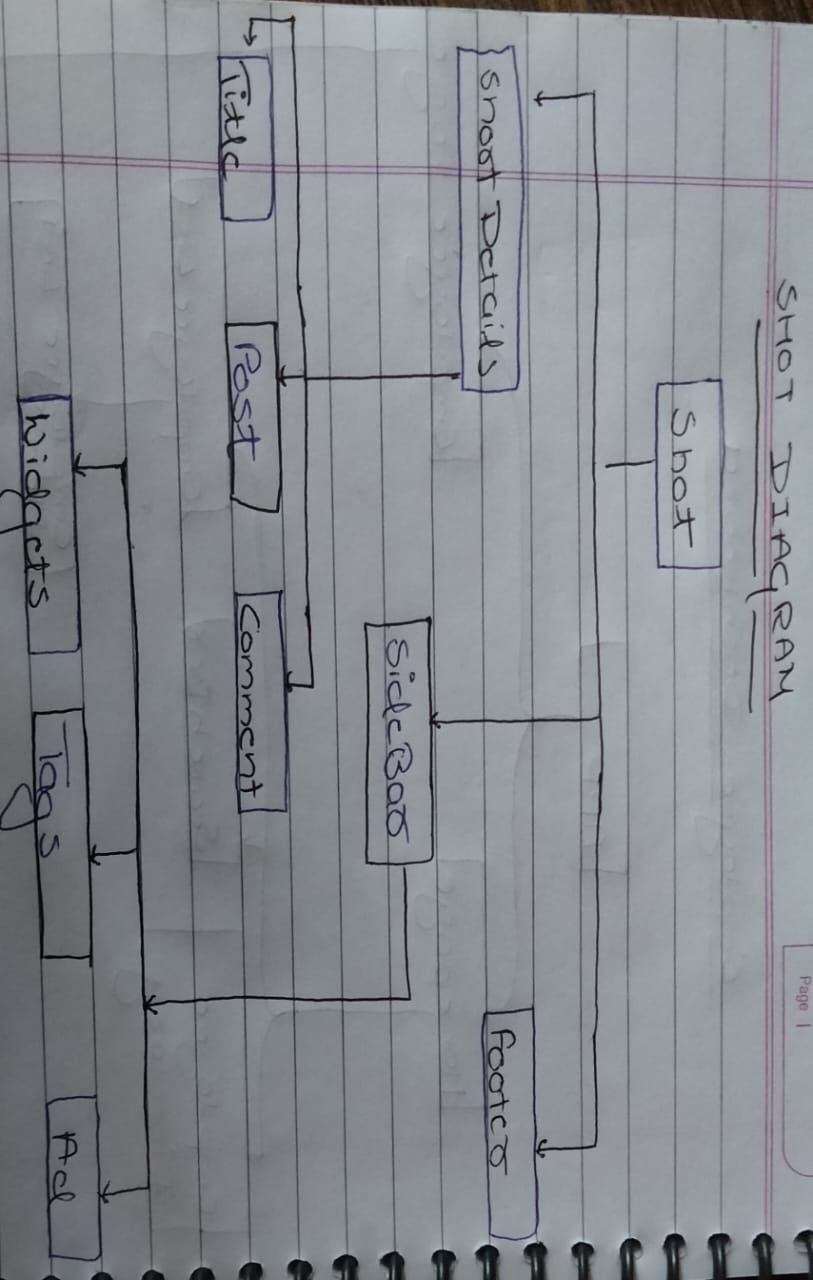 Page 1
SHOT DIAGRAM
Shot
Shoot Details
SideBar
Footer
Title
Post
Comment
Widgets
Tags
Ad